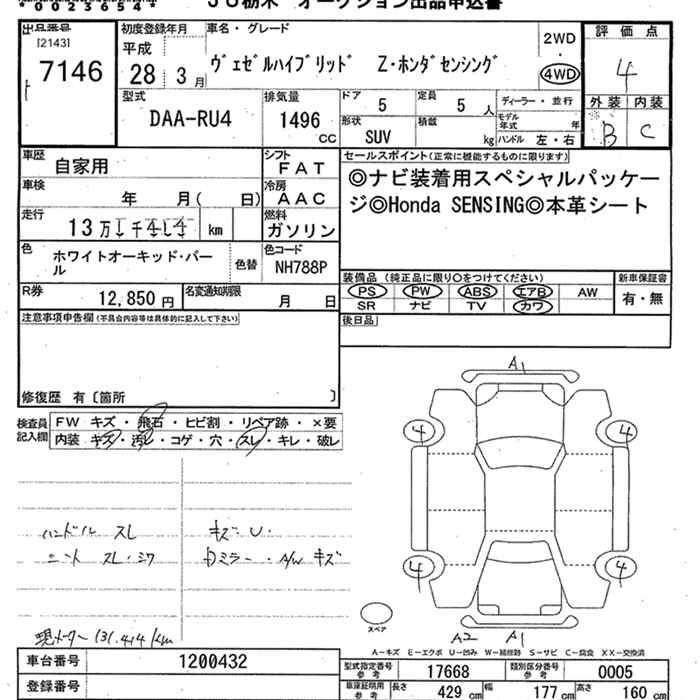 *0023654*
JU栃木 オークション出品申込書
出品番号 初度登録年月 車名・グレード 評価点
[2143] 平成 2WD
7146 28年3月 ヴェゼルハイブリッド Z・ホンダセンシング ・ 4
4WD
型式 排気量 ドア 5 定員 5人 ディーラー・並行 外装 内装
DAA-RU4 1496cc 形状 SUV 積載 kg モデル年式 年 B C
ハンドル 左・右
車歴 自家用 シフト FAT セールスポイント(正常に機能するものに限ります)
車検 年 月( 日) 冷房 AAC ◎ナビ装着用スペシャルパッケー
走行 13万1千414 km 燃料 ガソリン ジ◎Honda SENSING◎本革シート
色 ホワイトオーキッド・パール 色替 色コード NH788P
装備品(純正品に限り○をつけてください) 新車保証書
R券 12,850円 名変通知期限 月 日 PS PW ABS エアB AW 有・無
SR ナビ TV カワ
注意事項申告欄(不具合内容等は具体的に記入して下さい) 後日品
修復歴 有〔箇所 〕
検査員記入欄 FW キズ・飛石・ヒビ割・リペア跡・×要
内装・キズ・汚レ・コゲ・穴・スレ・キレ・破レ
A1
4 4
ハンドル スレ キズ・U・
シート スレ・シワ Dミラー・A/W キズ
4 4
スペア
現メーター131,414km A2 A1
A-キズ E-エクボ U-凹み W-補修跡 S-サビ C-腐食 XX-交換済
車台番号 1200432 型式指定番号 参考 17668 類別区分番号 参考 0005
登録番号 車庫証明用 参考 長さ 429cm 幅 177cm 高さ 160cm